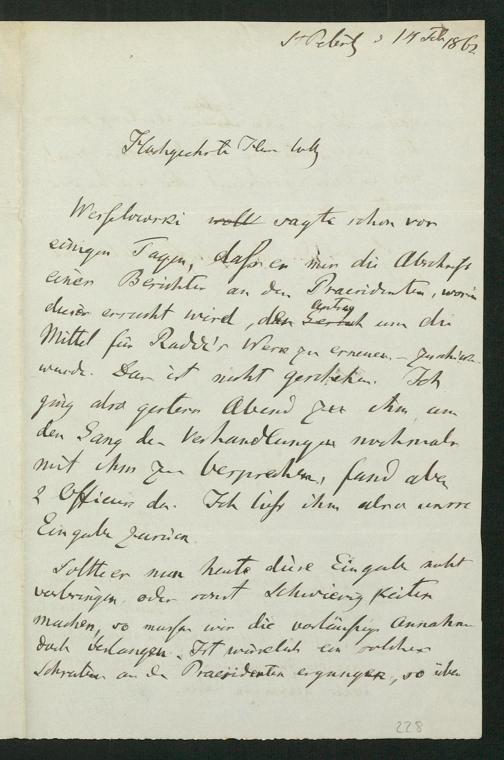 St Petersb 3 14 Feb 1862
Hochgeehrter Herr
Wesselowski wollt sagte schon vor
einigen Tagen, daß er mir die Abschrift
eines Berichtes an den Praesidenten, worin
dieser ersucht wird, den Antrag um die
Mittel für Radde's Werk zu erneuen. – zuschicken
wurde. Das ist nicht geschehen. Ich
ging also gestern Abend zu ihm, um
den Gang der Verhandlungen nochmals
mit ihm zu besprechen, fand aber
2 Officiere da. Ich ließ ihm also unsre
Eingabe zurück.
Sollte er nun heute diese Eingabe nicht
vorbringen oder sonst Schwierigkeiten
machen, so müssen wir die vorläufige Annahme
doch verlangen. Ist wirklich ein solches
Schreiben an den Praesidenten ergangen, so über
228